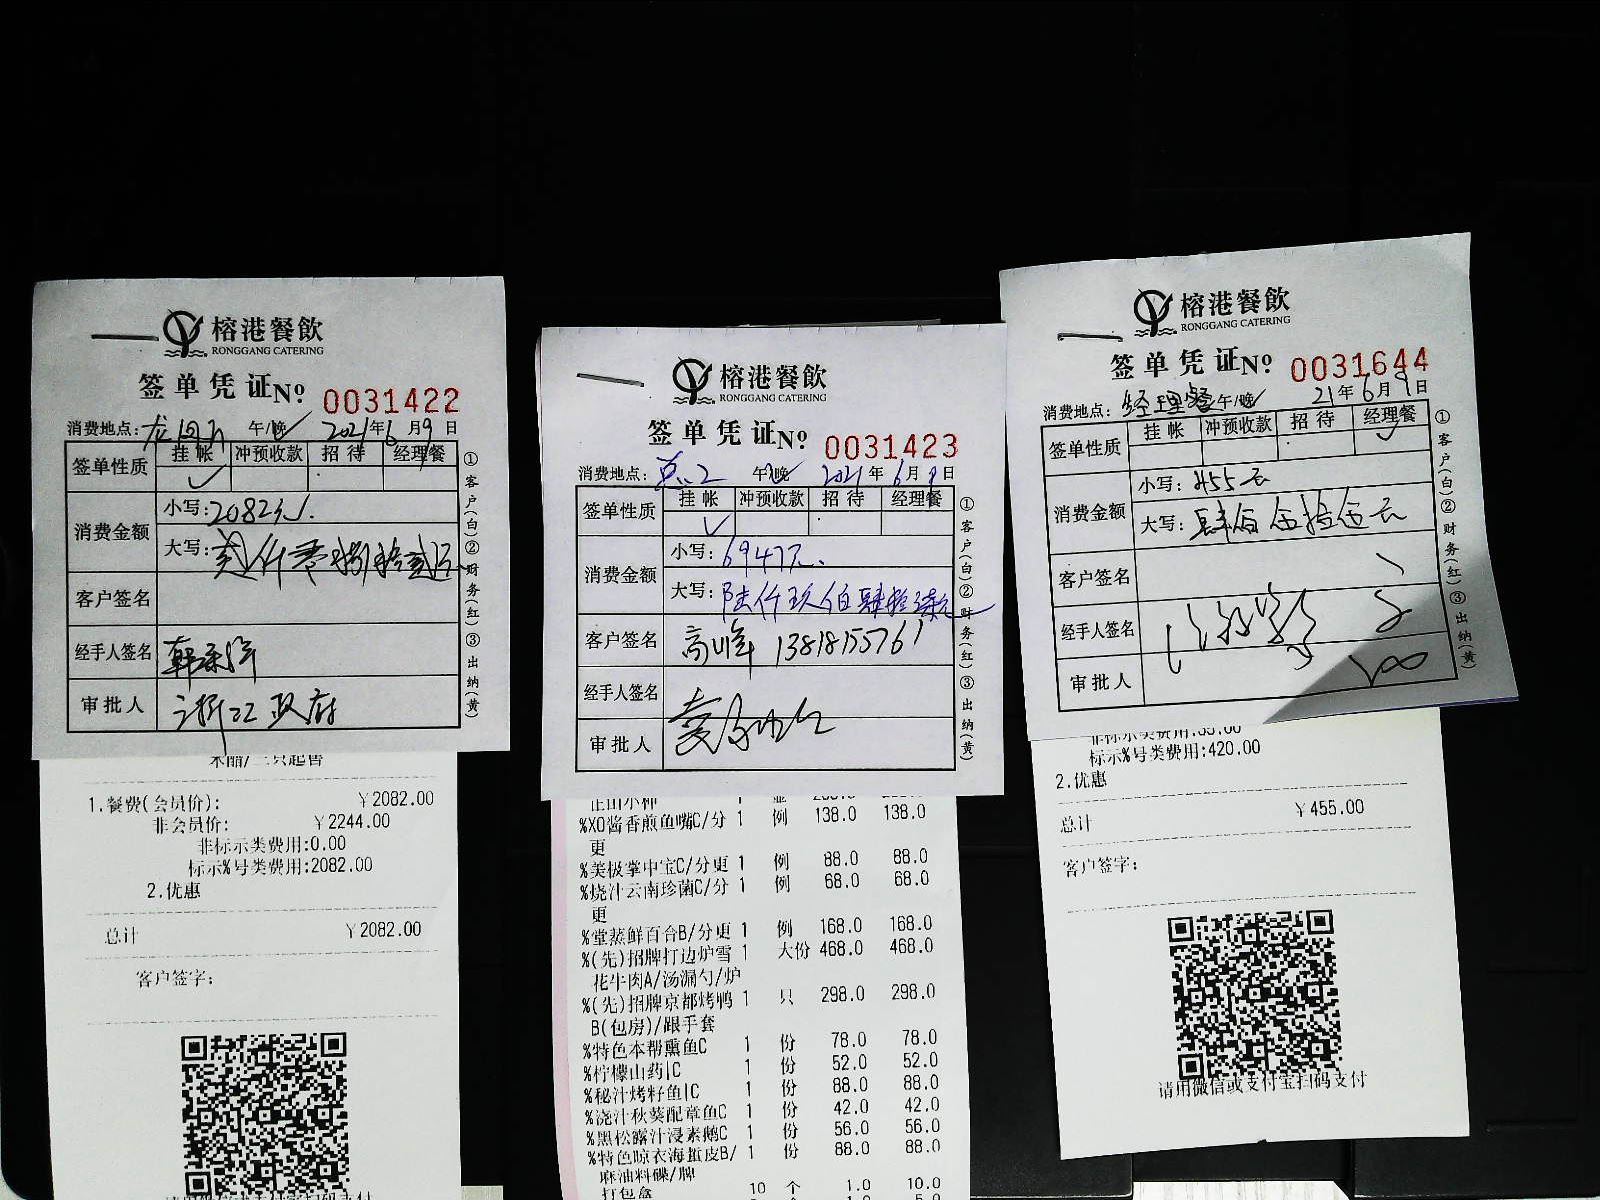 榕港餐飲
RONGGANG CATERING
签单凭证No 0031422
消费地点: 午/晚 2021年6月9日
签单性质 挂帐 冲预收款 招待 经理餐
消费金额 小写:2082
大写:贰仟零捌拾贰
客户签名
经手人签名
审批人 浙江政府
①客户(白)②财务(红)③出纳(黄)
米醋/二只起售
1.餐费(会员价): ￥2082.00
非会员价: ￥2244.00
非标示类费用:0.00
标示%号类费用:2082.00
2.优惠
总计 ￥2082.00
客户签字:
榕港餐飲
RONGGANG CATERING
签单凭证No 0031423
消费地点: 午/晚 2021年6月9日
签单性质 挂帐 冲预收款 招待 经理餐
消费金额 小写:6947元
大写:陆仟玖佰肆拾柒元
客户签名 高峰 13818155761
经手人签名
审批人
①客户(白)②财务(红)③出纳(黄)
正山小种 1 壶
%XO酱香煎鱼嘴C/分更 1 例 138.0 138.0
%美极掌中宝C/分更 1 例 88.0 88.0
%烧汁云南珍菌C/分更 1 例 68.0 68.0
%堂蒸鲜百合B/分更 1 例 168.0 168.0
%(先)招牌打边炉雪花牛肉A/汤漏勺/炉 1 大份 468.0 468.0
%(先)招牌京都烤鸭B(包房)/跟手套 1 只 298.0 298.0
%特色本帮熏鱼C 1 份 78.0 78.0
%柠檬山药|C 1 份 52.0 52.0
%秘汁烤籽鱼|C 1 份 88.0 88.0
%浇汁秋葵配章鱼C 1 份 42.0 42.0
%黑松露汁浸素鹅C 1 份 56.0 56.0
%特色晾衣海蜇皮B/麻油料碟/牌 1 份 88.0 88.0
打包盒 10 个 1.0 10.0
榕港餐飲
RONGGANG CATERING
签单凭证No 0031644
消费地点:经理餐 午/晚 21年6月9日
签单性质 挂帐 冲预收款 招待 经理餐
消费金额 小写:455元
大写:肆佰伍拾伍元
客户签名
经手人签名
审批人
①客户(白)②财务(红)③出纳(黄)
非标示类费用:35.00
标示%号类费用:420.00
2.优惠
总计 ￥455.00
客户签字:
请用微信或支付宝扫码支付